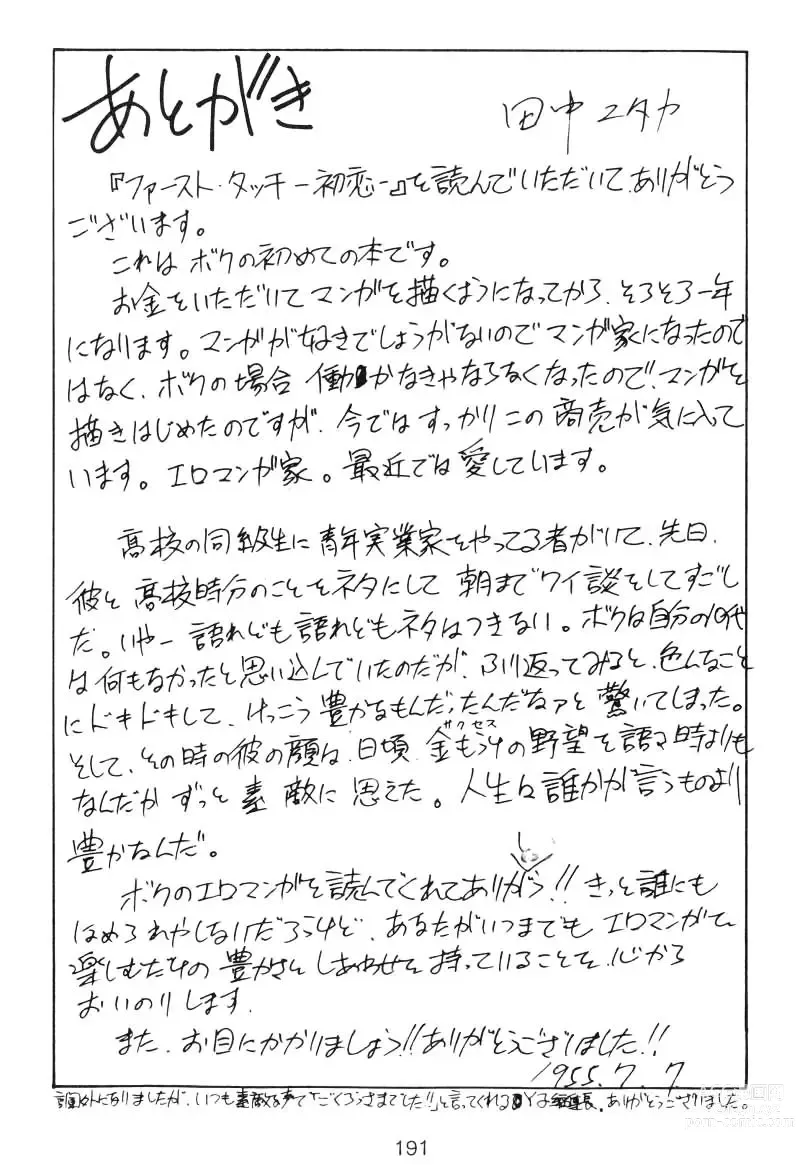 あとがき
田中ユタカ
『ファースト・タッチ-初恋-』を読んでいただいて、ありがとう
ございます。
これは ボクの初めての本です。
お金をいただいてマンガを描くようになってから、そろそろ一年
になります。マンガが好きでしょうがないのでマンガ家になったので
はなく、ボクの場合 働かなきゃならなくなったので、マンガを
描きはじめたのですが、今ではすっかりこの商売が気に入って
います。エロマンガ家。最近では愛しています。
高校の同級生に青年実業家をやってる者がいて、先日、
彼と高校時分のことをネタにして 朝までワイ談をしてすごし
た。いやー 語れども語れどもネタはつきない。ボクは自分の10代
は何もなかったと思い込んでいたのだが、ふり返ってみると、色んなこと
にドキドキして、けっこう豊かなもんだったんだなァと驚いてしまった。
そして、その時の彼の顔は、日頃、金もうけの野望を語る時よりも
サクセス
なんだか ずっと素敵に思えた。人生は誰かが言うものより
豊かなんだ。
ボクのエロマンガを読んでくれてありがとう!! きっと誰にも
ほめられやしないだろうけど、あなたがいつまでもエロマンガで
楽しむだけの豊かさとしあわせを持っていることを、心から
おいのりします。
また、お目にかかりましょう!! ありがとうございました!!
1955.7.7
いつも素敵な声で「ごくろうさまでした!!」と言ってくれる ありがとうございました。
191